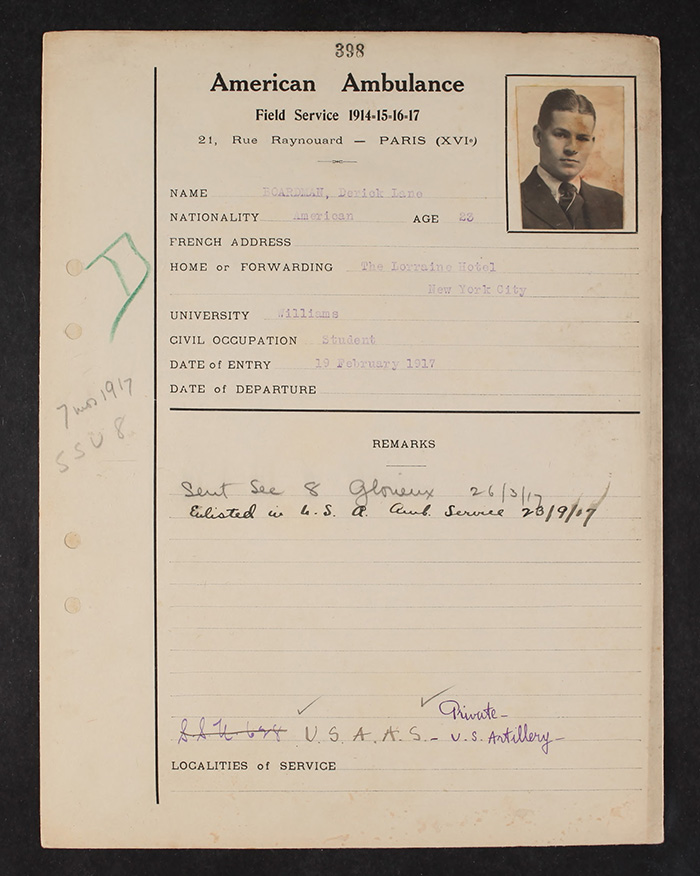 398
American Ambulance
Field Service 1914-15-16-17
21, Rue Raynouard — PARIS (XVIe)
NAME BOARDMAN, Derick Lane
NATIONALITY American AGE 23
FRENCH ADDRESS
HOME or FORWARDING The Lorraine Hotel
New York City
UNIVERSITY Williams
CIVIL OCCUPATION Student
DATE of ENTRY 19 February 1917
DATE of DEPARTURE
7 mos 1917
SSU 8
REMARKS
Sent Sec 8 Glorieux 26/3/17
Enlisted in U. S. A. Amb. Service 23/9/17
Private –
S.S.U 628 U. S. A. A. S. – U.S. Artillery –
LOCALITIES of SERVICE